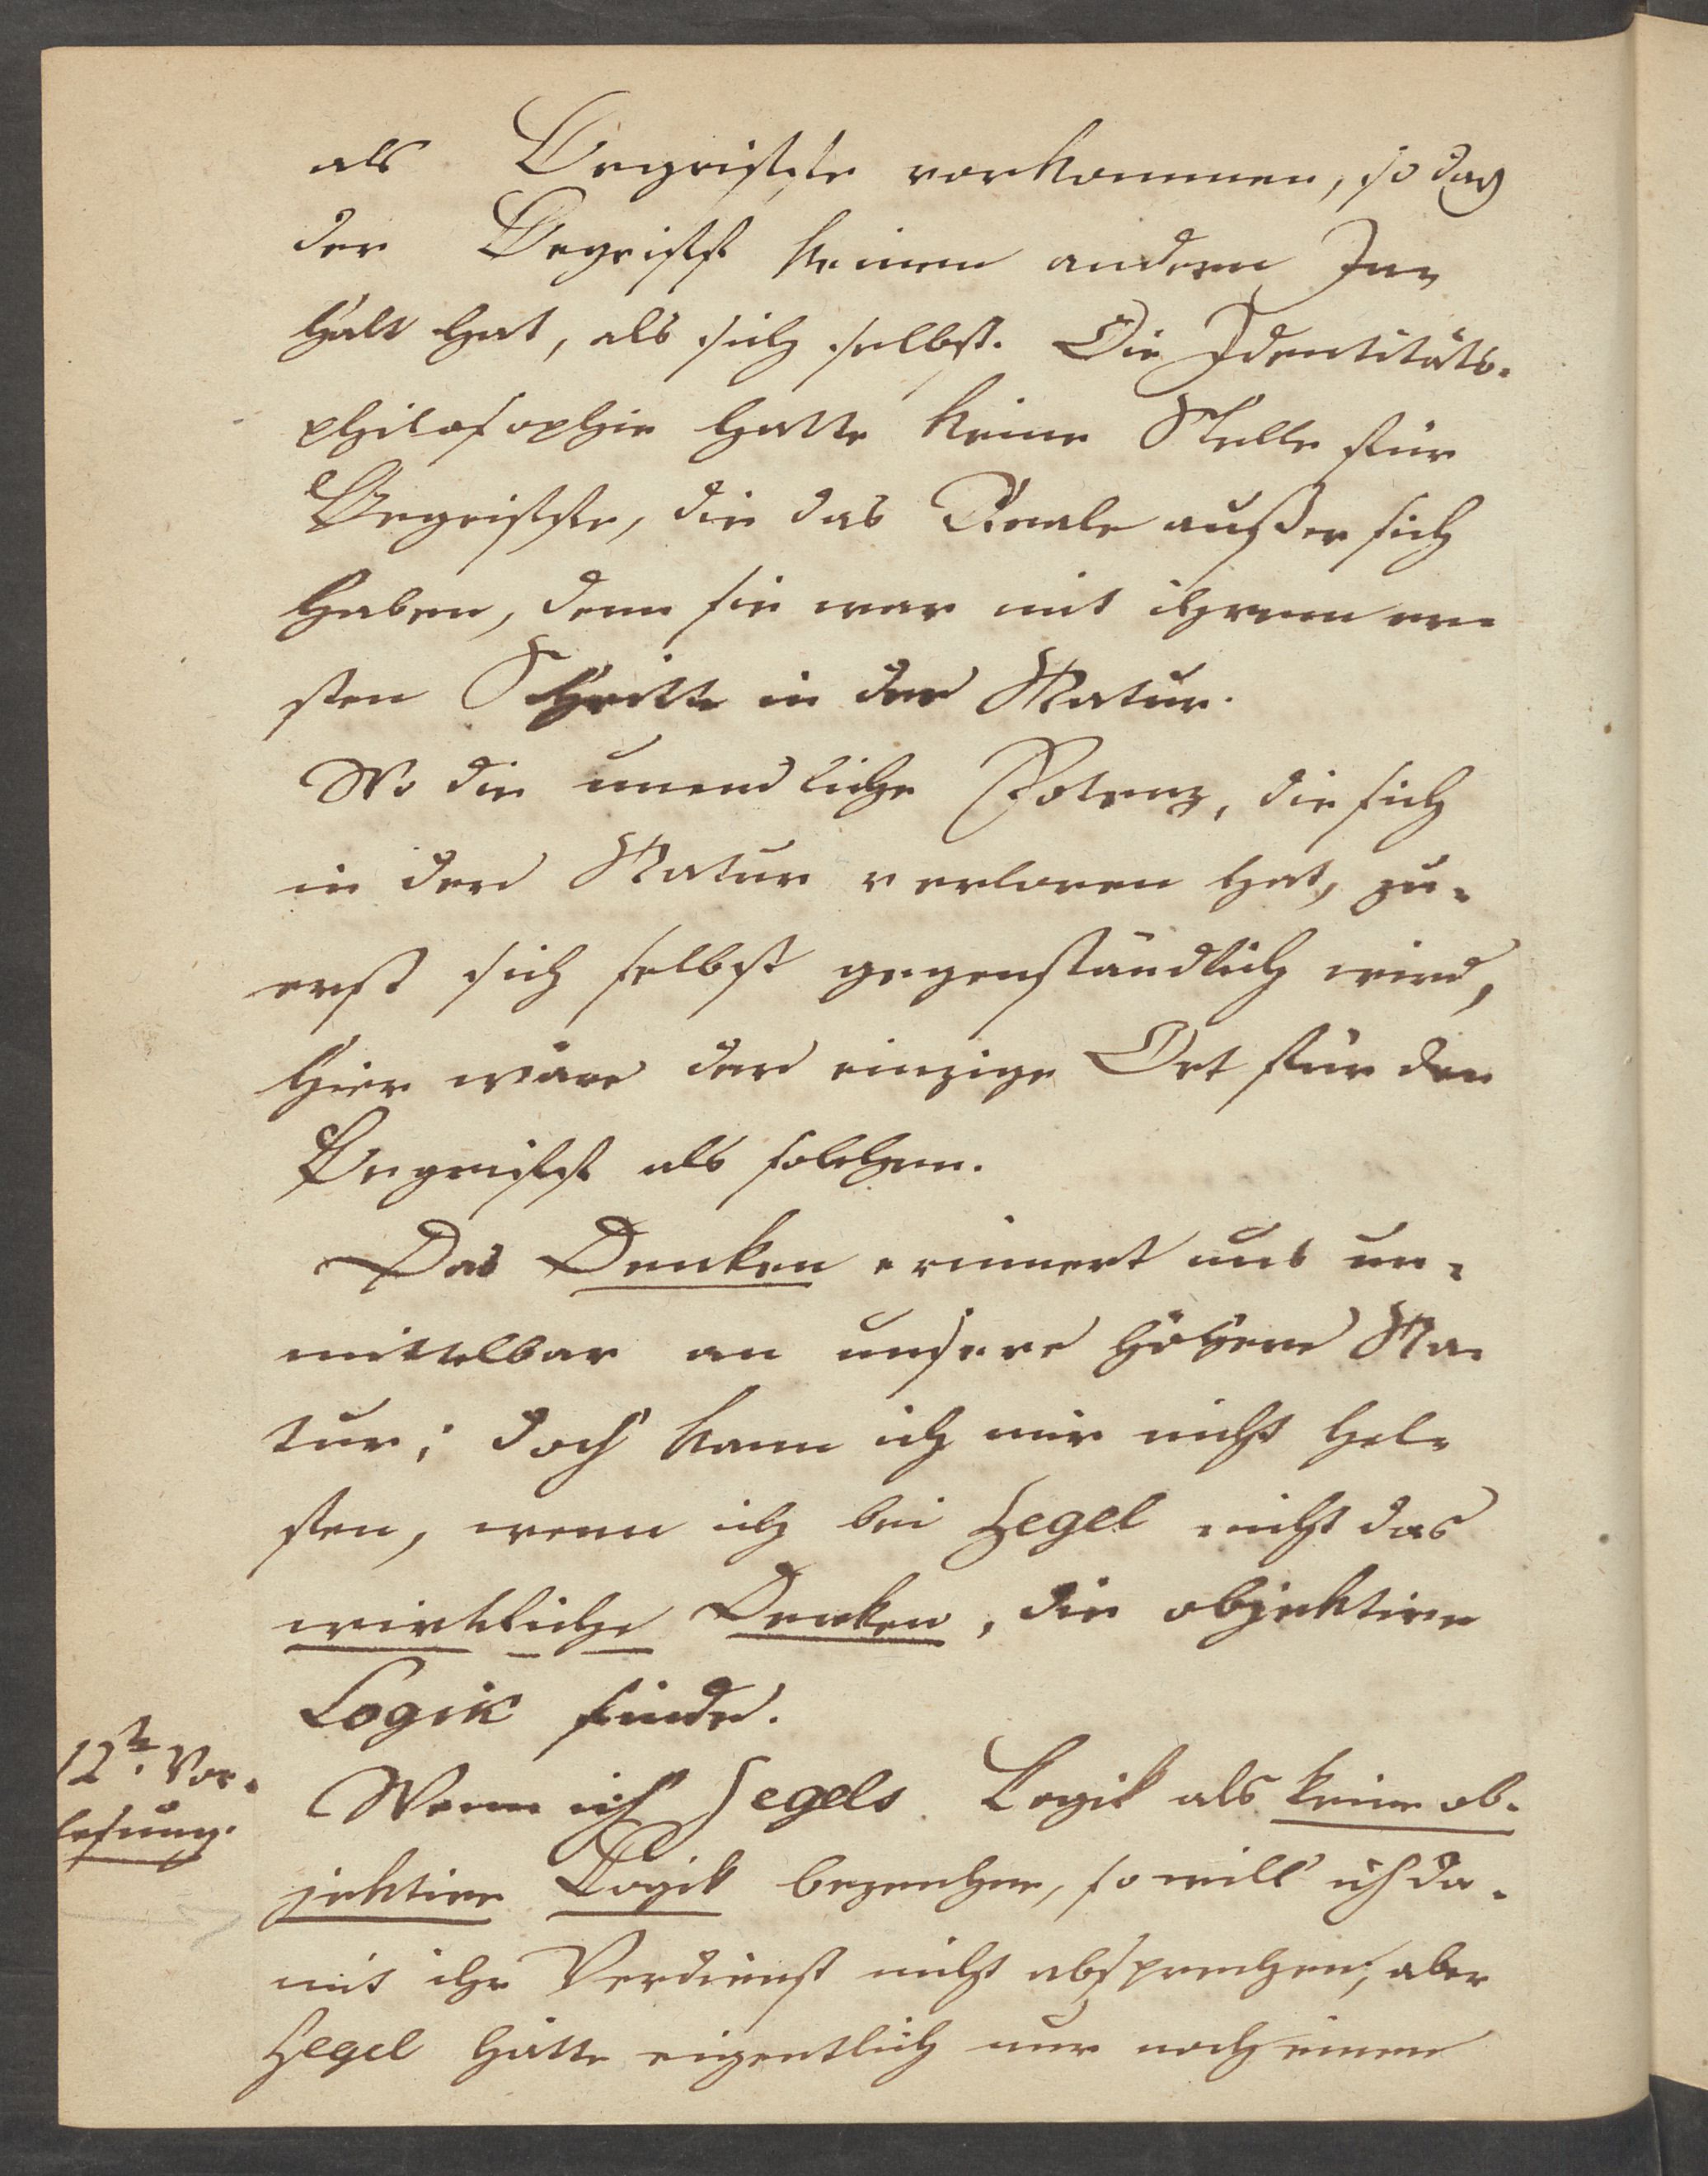 als Begriffe vorkommen, so daß
der Begriff keinen andern In-
halt hat, als sich selbst. Die Identitäts-
philosophie hatte keine Stelle für
Begriffe, die das Reale außer sich
haben, denn sie war mit ihrem er-
sten Schritte in der Natur.
Wo die unendliche Potenz, die sich
in der Natur verloren hat, zu-
erst sich selbst gegenständlich wird,
hier wäre der einzige Ort für den
Begriff als solchen.
Das Denken erinnert uns un-
mittelbar an unsere höhere Na-
tur; doch kann ich mir nicht hel-
fen, wenn ich bei Hegel nicht das
wirkliche Denken, die objektive
Logik finde.
12te Vor-
lesung.
Wenn ich Hegels Logik als keine ob-
jektive Logik bezeuchne, so will ich da-
mit ihr Verdienst nicht absprechen; aber
Hegel hätte eigentlich nur noch einen